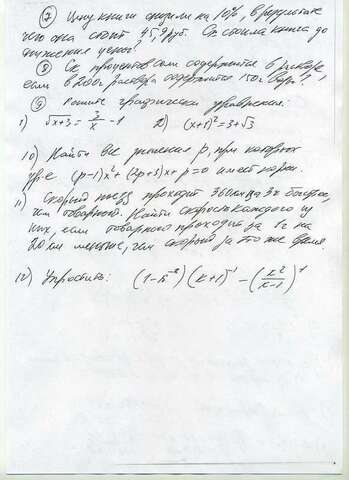 7) Цену книги снизили на 10%, в результате
чего она стоит 45,9 руб. Ск стоила книга до
снижения цены?
8) Ск процентов соли содержится в растворе
если в 200г раствора содержится 150г воды?
9) Решите графически уравнения:
1) √x+3 = 2/x - 1 2) (x+1)² = 3+√3
10) Найти все значения p, при которых
ур-е (p-1)x² + (2p+5)x + p = 0 имеет корни.
11) Скорый поезд проходит 360км на 3ч быстрее,
чем товарный. Найти скорость каждого из
них, если товарный проходит за 1ч на
20 км меньше, чем скорый за то же время.
12) Упростить: (1-n⁻²)(x+1)⁻¹ - (x²/x-1)⁻¹